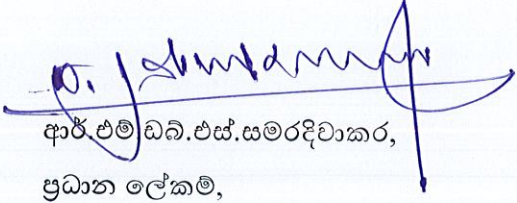 ආර්.එම් ඩබ්.එස්.සමරදිවාකර,
ප්‍රධාන ලේකම්,